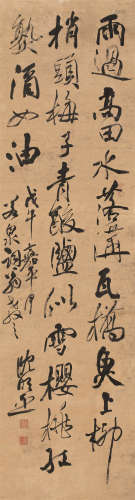 雨過高田水落溝瓦橋魚上柳
梢頭梅子青酸鹽似雪櫻桃紅
熟酒如油
戊午嘉平月
若泉詞翁教之